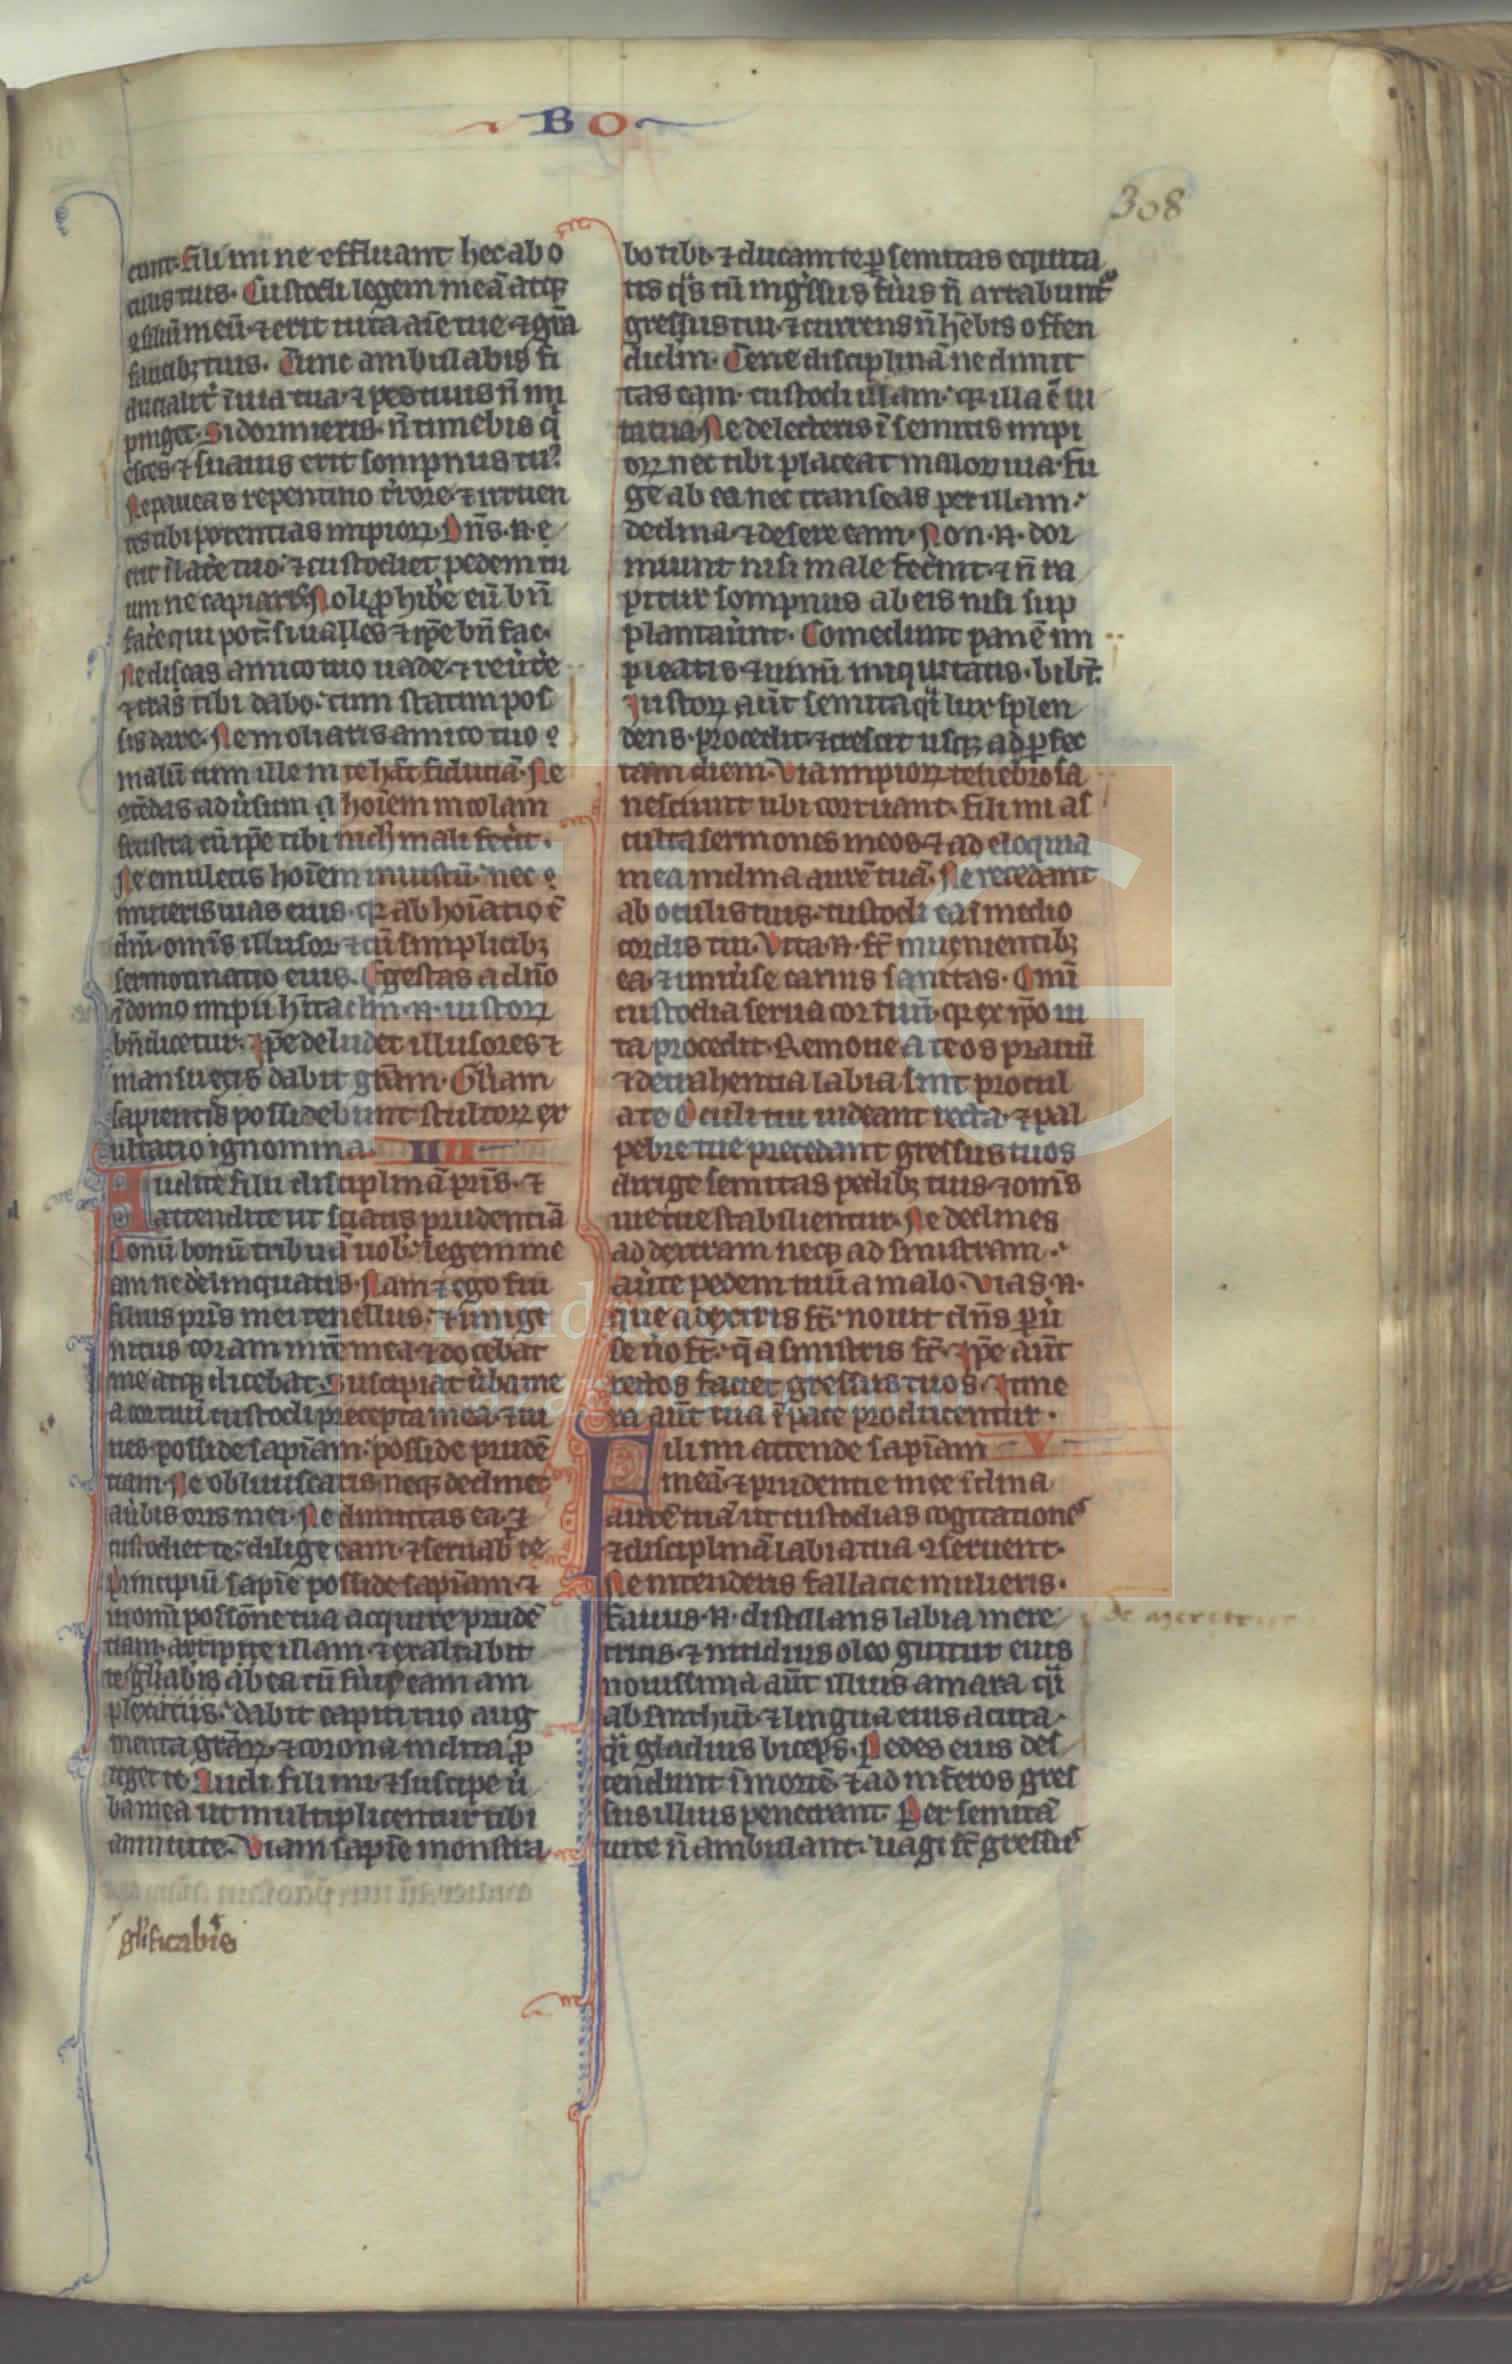 BO
308
cunt. fili mi ne effluant hec ab o
culis tuis. Custodi legem meã atq₃
ꝯsiliũ meũ. ⁊ erit uita aĩe tue. ⁊ grã
faucib₃ tuis. Tunc ambulabis fi
ducialit̾ ĩ uia tua. ⁊ pes tuus ñ im
pinget. Si dormieris. ñ timebis q̾
esces ⁊ suauis erit sompnus tuꝰ
Ne paueas repentino t̾rore. ⁊ irruen
tes tibi potentias impioꝝ. Dñs .n. e
rit ĩ lat̾e tuo. ⁊ custodiet pedem tu
um ne capiaris. Noli ꝓhib̾e eũ bñ
fac̾e qui pot̾. si uales ⁊ ip̃e bñ fac.
Ne dicas amico tuo uade. ⁊ reu̾t̾e
⁊ cras tibi dabo. cum statim pos
sis dare. Ne moliaris amico tuo
malũ cum ille in te hãt fiduciã. Ne
ꝯtẽdas adu̾sum hoĩem incolam
frustra cũ ip̃e tibi nich̾ mali fec̾it.
Ne emuleris hoĩem iniustũ. nec
imiteris uias eius. q̾ abhoĩatio ẽ
dñi omĩs illusor. ⁊ cũ simplicib₃
sermocinatio eius. Egestas a dño
ĩ domo impii h̾itac̃lm .n. iustoꝝ
bñdicetur. Ip̃e deludet illusores ⁊
mansuetis dabit grãm. Glãm
sapientes possidebunt stultoꝝ ex
ultatio ignominia. IIII
Audite filii disciplinã pr̃is. ⁊
attendite ut sciatis prudentiã
Donũ bonũ tribuã uob̾. legem me
am ne derelinquatis. Nam ⁊ ego fui
filius pr̃is mei tenellus. ⁊ unige
nitus coram mr̃e mea. ⁊ docebat
me atq₃ dicebat. Suscipiat u̾ba mea
cor tuũ custodi precepta mea. ⁊ ui
ues. posside sapiẽam. posside prudẽ
tiam. Ne obliuiscaris neq₃ declines
a u̾bis oris mei. Ne dimittas eã. ⁊
custodiet te. dilige eam. ⁊ seruabit te
Principiũ sapiẽe posside sapiẽam. ⁊
ĩ omi possõne tua acquire prudẽ
tiam. arripe illam. ⁊ exaltabit
te gl̃abis ab ea cũ fu̾is eam am
plexatus. dabit capiti tuo aug
menta grãꝝ. ⁊ corona inclita ꝓ
teget te. Audi fili mi. ⁊ suscipe u̾
ba mea ut multiplicentur tibi
anni uite. Viam sapiẽe monstra
gl̾ificab̾is
bo tibi. ⁊ ducam te ꝑ semitas equita
tis q̾s cũ ingr̾ssus fu̾is ñ artabuntᵘʳ
gressus tui. ⁊ currens ñ h̾ebis offen
diclm. Tene disciplinã ne dimit
tas eam. custodi illam. q̾ illa ẽ ui
ta tua. Ne delecteris ĩ semitis impi
oꝝ nec tibi placeat maloꝝ uia. fu
ge ab ea nec transeas per illam.
declina. ⁊ desere eam. Non .n. dor
miunt nisi male fec̾int. ⁊ ñ ra
pitur sompnus ab eis nisi sup
plantau̾int. Comedunt panẽ im
pietatis ⁊ uinũ iniquitatis. bibt̃.
Iustoꝝ aũt semita q̃i lux splen
dens. procedit. ⁊ crescit usq₃ ad ꝑfec
tam diem. Via impioꝝ tenebrosa
nesciunt ubi corruant. Fili mi as
culta sermones meos. ⁊ ad eloquia
mea inclina aurẽ tuã. Ne recedant
ab oculis tuis. custodi ea ĩ medio
cordis tui. Vita .n. st̃ inuenientib₃
ea. ⁊ uniu̾se carnis sanitas. Omĩ
custodia serua cor tuũ. q̾ ex ip̃o ui
ta procedit. Remoue a te os prauũ
⁊ detrahentia labia sint procul
a te. Oculi tui uideant recta. ⁊ pal
pebre tue precedant gressus tuos
dirige semitas pedib₃ tuis. ⁊ oms̃
uie tue stabilientur. Ne declines
ad dextram neq₃ ad sinistram.
au̾te pedem tuũ a malo. Vias .n.
que a dextris st̃. nouit dñs ꝑu̾
se u̾o st̃. q̃ a sinistris st̃. Ip̃e aũt
rectos faciet gressus tuos. Itine
ra aũt tua ĩ pace producentur.
Fili mi attende sapiẽam V
meã. ⁊ prudentie mee ĩclina
aurẽ tuã ut custodias cogitationes
⁊ disciplinã labia tua ꝯseruent.
Ne intenderis fallacie mulieris.
Fauus .n. distillans labia mere
tricis. ⁊ nitidius oleo guttur eius
nouissima aũt illius amara q̃i
absinthiũ. ⁊ lingua eius acuta.
q̃i gladius biceps. Pedes eius des
cendunt ĩ mortẽ. ⁊ ad inferos gres
sus illius penetrant. Per semitã
uite ñ ambulant. uagi st̃ gressus
de meretrice